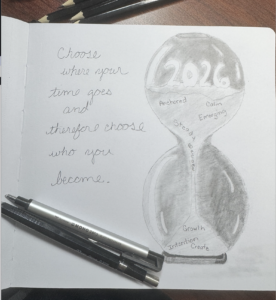 Choose
where your
time goes
and
therefore choose
who you
become.
2026
Anchored
Calm
Emerging
Growth
Intention
Create